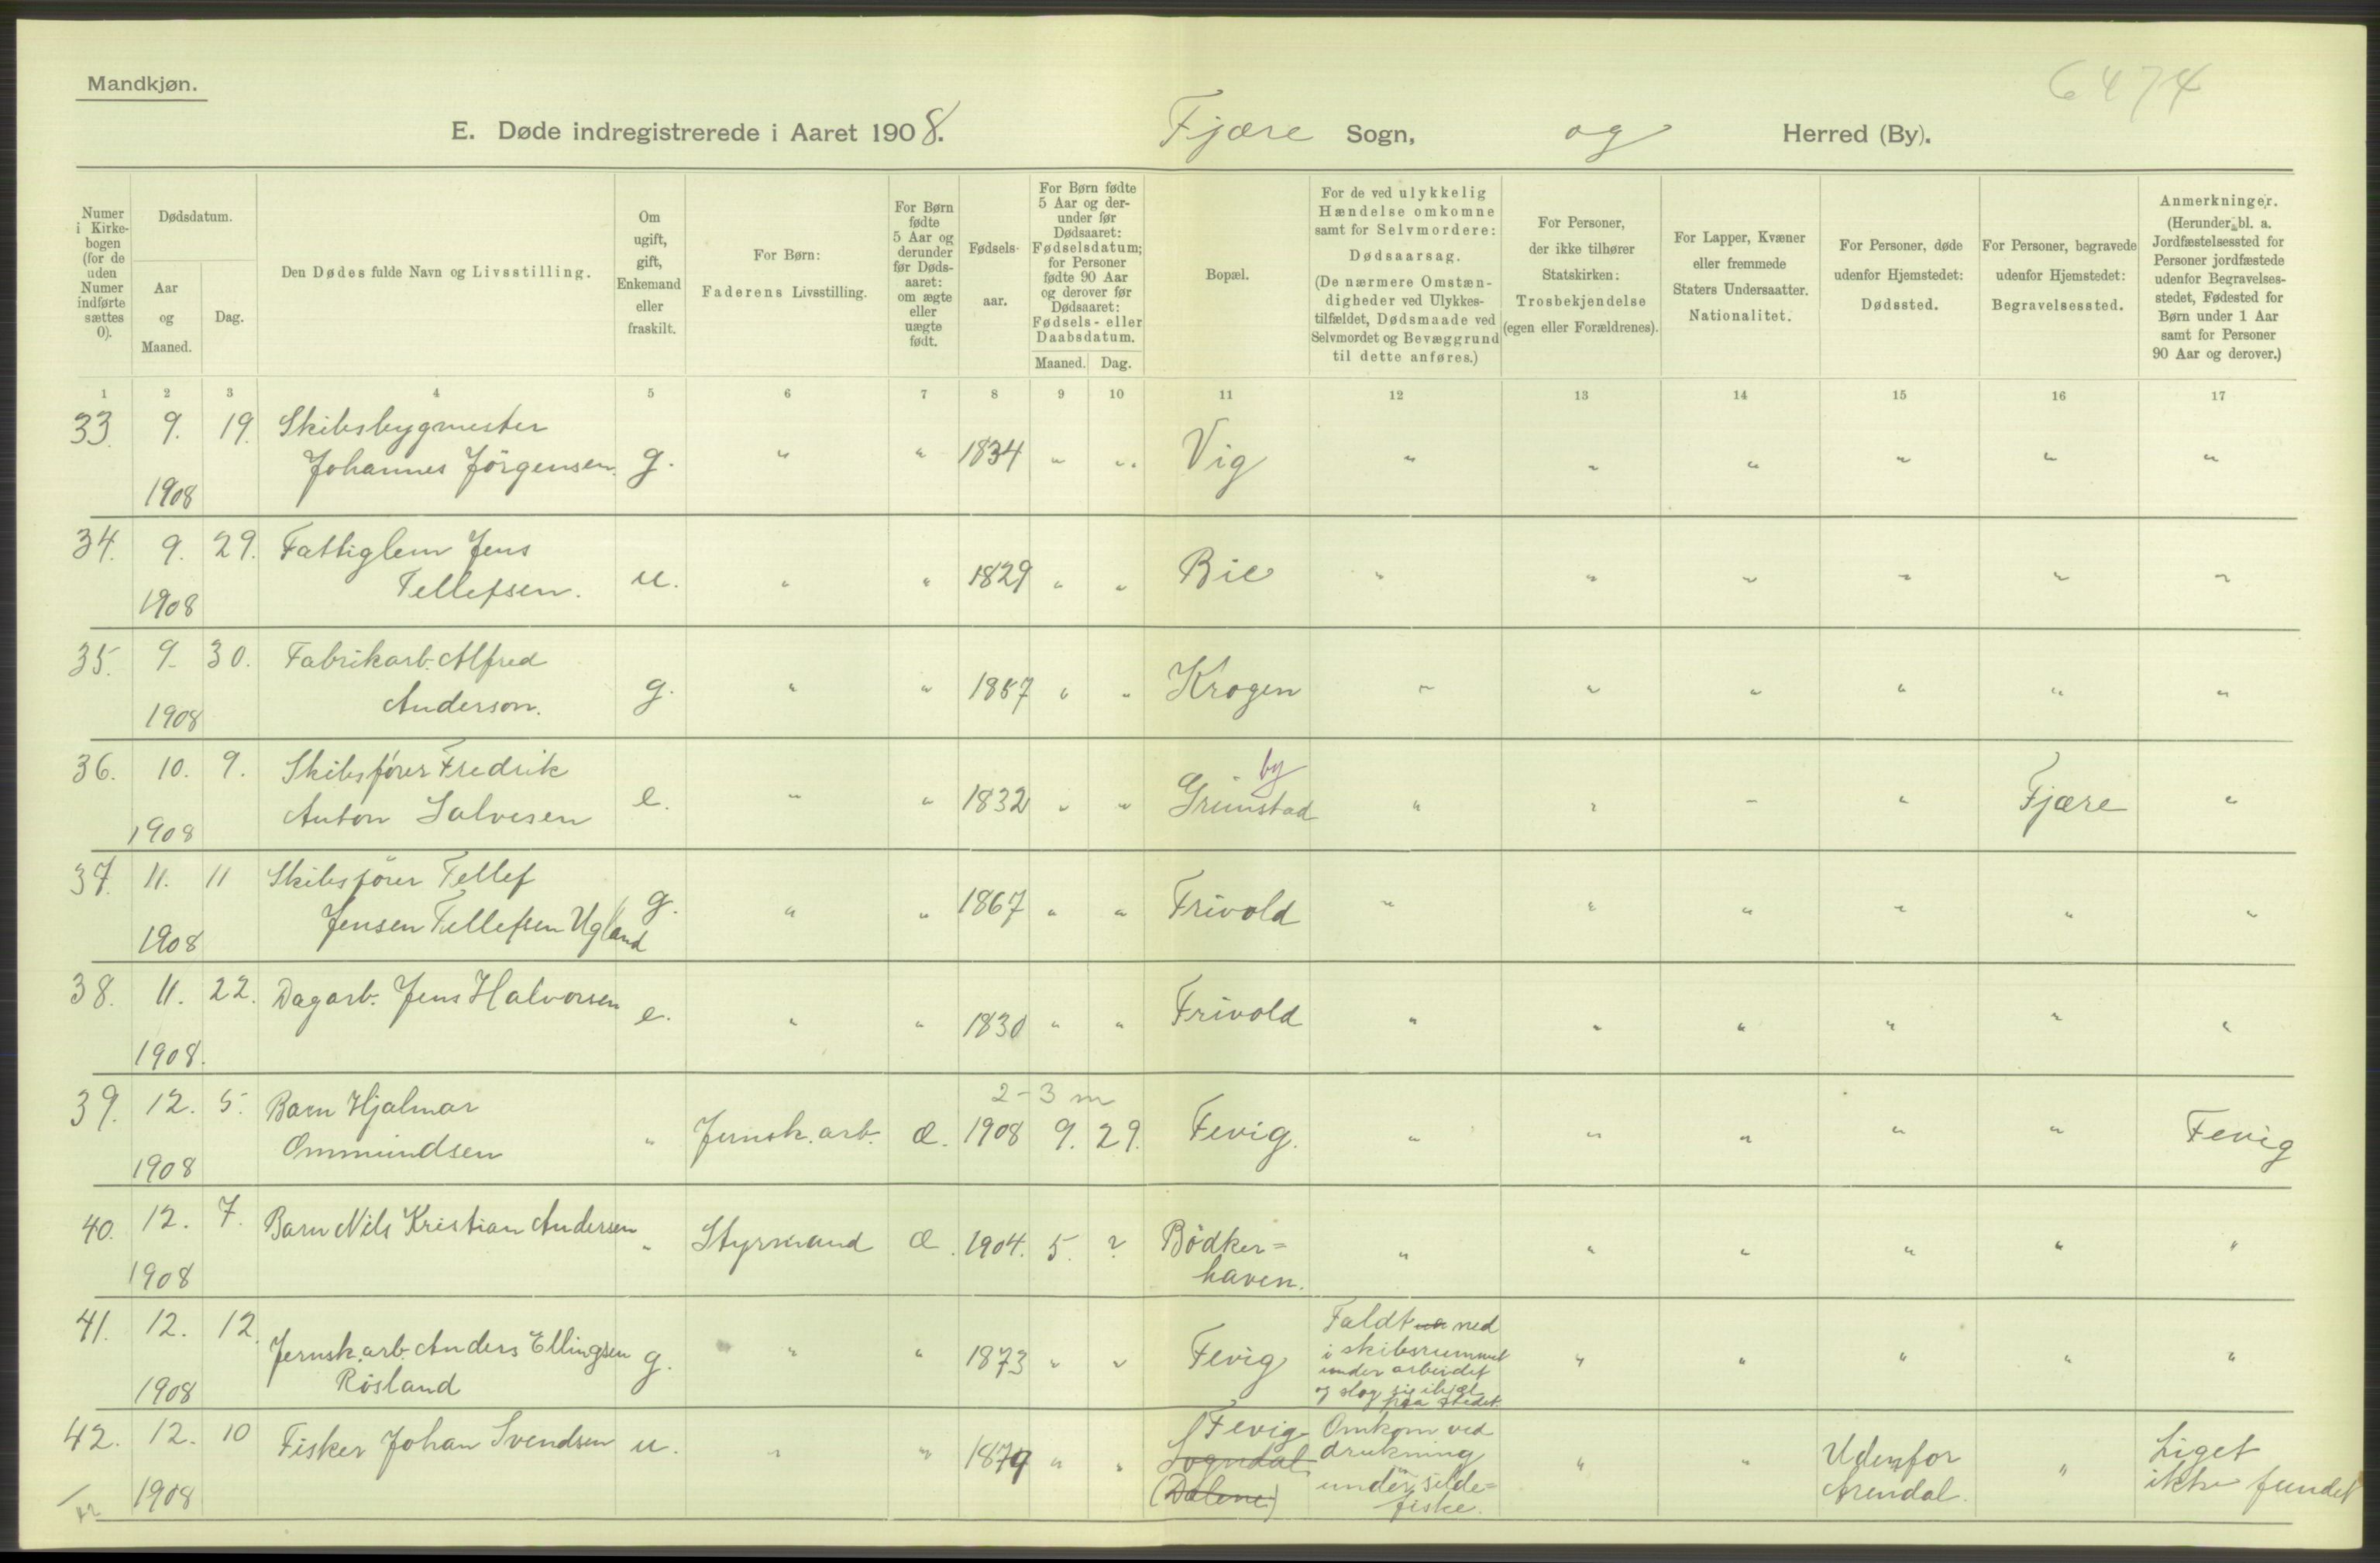 Mandkjøn.
6474
E. Døde indregistrerede i Aaret 1908. Fjære Sogn, og Herred (By).
Numer i Kirkebogen (for de uden Numer indførte sættes 0).
Dødsdatum.
Aar og Maaned.
Dag.
Den Dødes fulde Navn og Livsstilling.
Om ugift, gift, Enkemand eller fraskilt.
For Børn: Faderens Livsstilling.
For Børn fødte 5 Aar og derunder før Dødsaaret: om ægte eller uægte født.
Fødselsaar.
For Børn fødte 5 Aar og derunder før Dødsaaret: Fødselsdatum; for Personer fødte 90 Aar og derover før Dødsaaret: Fødsels- eller Daabsdatum.
Maaned. Dag.
Bopæl.
For de ved ulykkelig Hændelse omkomne samt for Selvmordere: Dødsaarsag. (De nærmere Omstændigheder ved Ulykkestilfældet, Dødsmaade ved Selvmordet og Bevæggrund til dette anføres.)
For Personer, der ikke tilhører Statskirken: Trosbekjendelse (egen eller Forældrenes).
For Lapper, Kvæner eller fremmede Staters Undersaatter. Nationalitet.
For Personer, døde udenfor Hjemstedet: Dødssted.
For Personer, begravede udenfor Hjemstedet: Begravelsessted.
Anmerkninger. (Herunder bl. a. Jordfæstelsessted for Personer jordfæstede udenfor Begravelsesstedet, Fødested for Børn under 1 Aar samt for Personer 90 Aar og derover.)
1 2 3 4 5 6 7 8 9 10 11 12 13 14 15 16 17
33. 9. 19. Skibsbygmester
Johannes Jörgensen. g. " " 1834 " " Vig " " " " " "
1908
34. 9. 29. Fattiglem Jens
Tellefsen. u. " " 1829 " " Bie " " " " " "
1908
35. 9. 30. Fabrikarb. Alfred
Anderson. g. " " 1857 " " Krogen " " " " " "
1908
36. 10. 9. Skibsfører Fredrik by
Anton Salvesen e. " " 1832 " " Grimstad " " " " Fjære "
1908
37. 11. 11 Skibsfører Tellef
Jensen Tellefsen Ugland g. " " 1867 " " Frivold " " " " " "
1908
38. 11. 22. Dagarb. Jens Halvorsen e. " " 1830 " " Frivold " " " " " "
1908.
39. 12. 5. Barn Hjalmar 2-3 m
Ommundsen " Jernsk. arb. Æ. 1908 9. 29. Fevig. " " " " " Fevig
1908
40. 12. 7. Barn Nils Kristian Andersen " Styrmand Æ. 1904. 5. ? Bödker=
haven. " " " " " "
1908
41. 12. 12. Jernsk. arb. Anders Ellingsen
Rösland g. " " 1873 " " Fevig
Faldt ned
i skibsrummet
under arbeidet
og slog sig ihjæl
paa stedet. " " " " "
1908
42. 12. 10 Fisker Johan Svendsen u. " " 1879 " " Fevig
Sogndal
(Dalene)
Omkom ved
drukning
under silde=
fiske. " "
Udenfor
Arendal. "
Liget
ikke fundet
1908